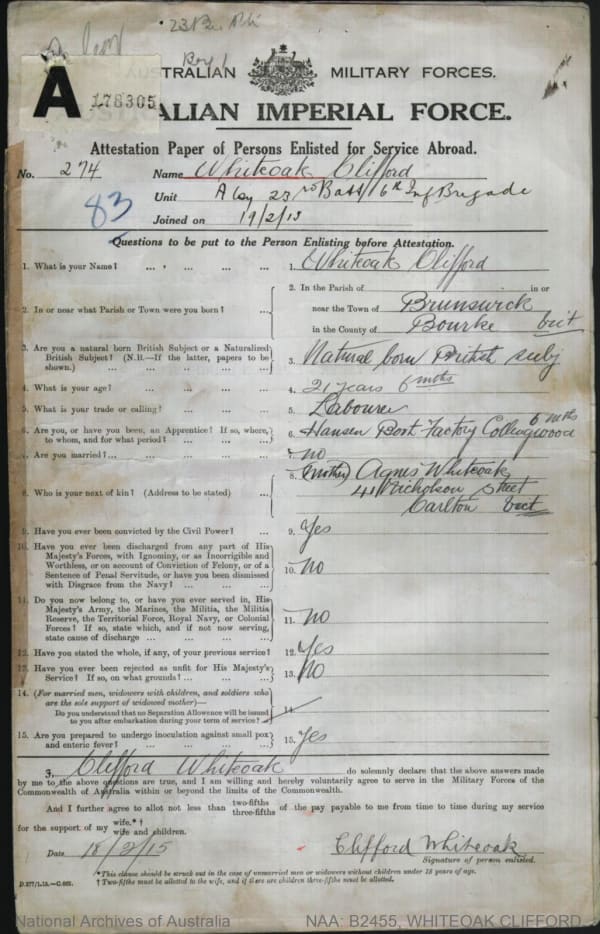 23 Bn
AUSTRALIAN MILITARY FORCES.
A 178305
AUSTRALIAN IMPERIAL FORCE.
Attestation Paper of Persons Enlisted for Service Abroad.
No. 274 Name Whiteoak Clifford
Unit A Coy 23rd Batt 6th Inf Brigade
83
Joined on 19/2/15
Questions to be put to the Person Enlisting before Attestation.
1. What is your Name? ... ... ... ... 1. Whiteoak Clifford
2. In or near what Parish or Town were you born? ... 2. In the Parish of in or
near the Town of Brunswick
in the County of Bourke Vict
3. Are you a natural born British Subject or a Naturalized
British Subject? (N.B.—If the latter, papers to be
shown.) ... ... ... ... 3. Natural born British subj
4. What is your age? ... ... ... ... 4. 21 years 6 mths
5. What is your trade or calling? ... ... ... 5. Labourer
6. Are you, or have you been, an Apprentice? If so, where,
to whom, and for what period? ... ... ... 6. Hansen Boot Factory Collingwood 6 mths
7. Are you married? ... ... ... ... 7. no
8. Who is your next of kin? (Address to be stated) ... 8. (mother) Agnes Whiteoak
41 Nicholson Street
Carlton Vict
9. Have you ever been convicted by the Civil Power? ... 9. Yes
10. Have you ever been discharged from any part of His
Majesty's Forces, with Ignominy, or as Incorrigible and
Worthless, or on account of Conviction of Felony, or of a
Sentence of Penal Servitude, or have you been dismissed
with Disgrace from the Navy? ... ... ... 10. no
11. Do you now belong to, or have you ever served in, His
Majesty's Army, the Marines, the Militia, the Militia
Reserve, the Territorial Force, Royal Navy, or Colonial
Forces? If so, state which, and if not now serving,
state cause of discharge ... ... ... ... 11. no
12. Have you stated the whole, if any, of your previous service? 12. Yes
13. Have you ever been rejected as unfit for His Majesty's
Service? If so, on what grounds? ... ... ... 13. No
14. (For married men, widowers with children, and soldiers who
are the sole support of widowed mother)—
Do you understand that no Separation Allowance will be issued
to you after embarkation during your term of service? 14.
15. Are you prepared to undergo inoculation against small pox
and enteric fever? ... ... ... ... 15. Yes
3, Clifford Whiteoak do solemnly declare that the above answers made
by me to the above questions are true, and I am willing and hereby voluntarily agree to serve in the Military Forces of the
Commonwealth of Australia within or beyond the limits of the Commonwealth.
And I further agree to allot not less than two-fifths three-fifths of the pay payable to me from time to time during my service
for the support of my wife.*† wife and children.
Date 18/2/15 Clifford Whiteoak
Signature of person enlisted.
*This clause should be struck out in the case of unmarried men or widowers without children under 18 years of age.
† Two-fifths must be allotted to the wife, and if there are children three-fifths must be allotted.
National Archives of Australia NAA: B2455, WHITEOAK CLIFFORD